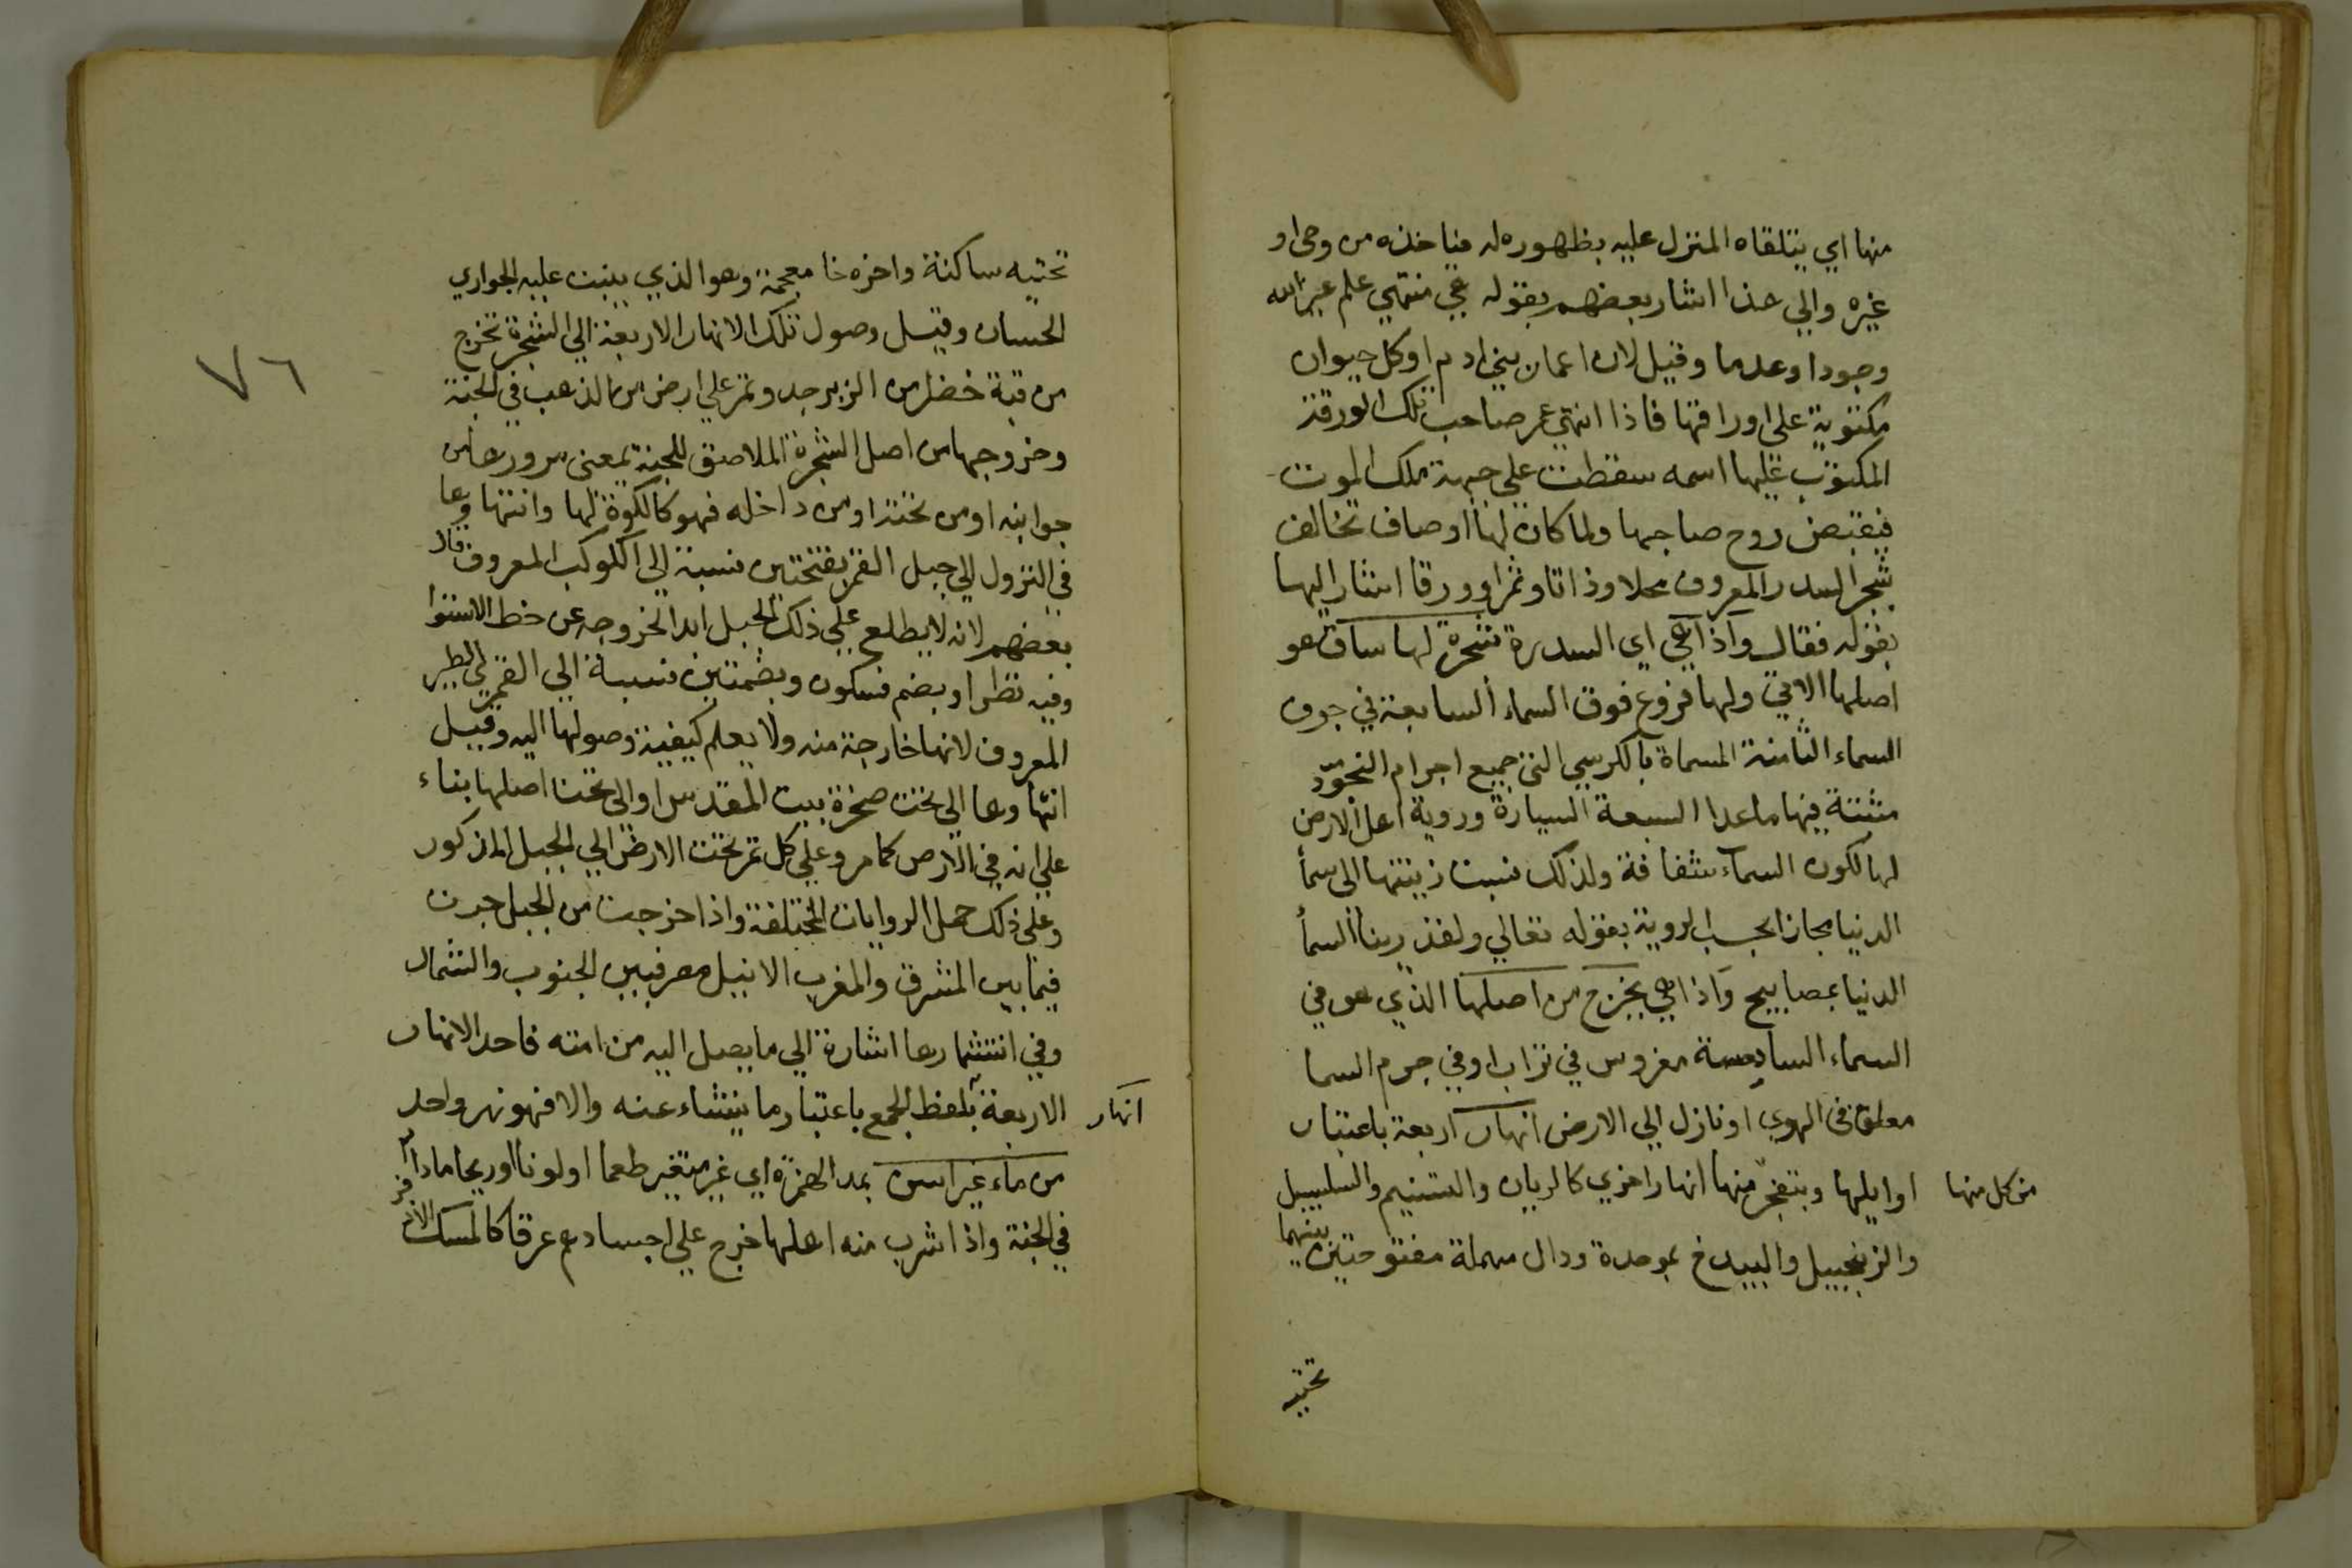 منها اي يتلقاه المنزل عليه بظهوره له فياخذه من وحي او
غيره والي هذا اشار بعضهم بقوله هي منتهي علم غير الله
وجودا وعدما وقيل لان اعمار بني ادم او كل حيوان
مكتوبة علي اوراقها فاذا انتهي عمر صاحب تلك الورقة
المكتوب عليها اسمه سقطت علي جبهة ملك الموت
فيقبض روح صاحبها ولما كان لها اوصاف تخالف
شجر السدر المعروف محلا وذاتا وثمرا وورقا اشار اليها
بقوله فقال واذا هي اي السدرة شجرة لها ساق هو
اصلها الاتي ولها فروع فوق السماء السابعة في جوف
السماء الثامنة المسماة بالكرسي التي جميع اجرام النجوم
مثبتة فيها ما عدا السبعة السيارة وروية اهل الارض
لها لكون السماء شفافة ولذلك نسبت زينتها الي سما
الدنيا مجازا بحسب الروية بقوله تعالي ولقد زينا السما
الدنيا بمصابيح واذا هي يخرج من اصلها الذي هو في
السماء السابعة مغروس في تراب او في جرم السما
معلق في الهوي او نازل الي الارض انهار اربعة باعتبار
اوايلها ويتفجر منها انهار اخري كالريان والتسنيم والسلسبيل
من كل منها
والزنجبيل والبيدخ بموحدة ودال مهملة مفتوحتين بينهما
تحتيه
٧٦
تحتيه ساكنة واخره خا معجمة وهو الذي ينبت عليه الجواري
الحسان وقيل وصول تلك الانهار الاربعة الي الشجرة تخرج
من قبة خضرا من الزبرجد وتمر علي ارض من الذهب في الجنة
وخروجها من اصل الشجرة الملاصق للجنة بمعني مرورها من
جوانبه او من تحته او من داخله فهو كالكوة لها وانتهاوها
في النزول الي جبل القمر بفتحتين نسبة الي الكوكب المعروف قال
بعضهم لانه لا يطلع علي ذلك الجبل ابدا لخروجه عن خط الاستوا
وفيه نظر او بضم فسكون وبضمتين نسبة الي القمري الطير
المعروف لانها خارجة منه ولا يعلم كيفية وصولها اليه وقيل
انتهاوها الي تحت صخرة بيت المقدس او الي تحت اصلها بناء
علي انه في الارض كما مر وعلي كل تمر تحت الارض الي الجبل المذكور
وعلي ذلك حمل الروايات المختلفة واذا خرجت من الجبل جرت
فيما بين المشرق والمغرب الا نيل مصر فبين الجنوب والشمال
وفي انتشارها اشارة الي ما يصل اليه من امته فاحد الانهار
الاربعة بلفظ الجمع باعتبار ما ينشاء عنه والا فهو نهر واحد
انهار
من ماء غير اسن بمد الهمزة اي غير متغير طعما او لونا او ريحا مادام
في الجنة واذا شرب منه اهلها خرج علي اجسادهم عرقا كالمسك الاذفر